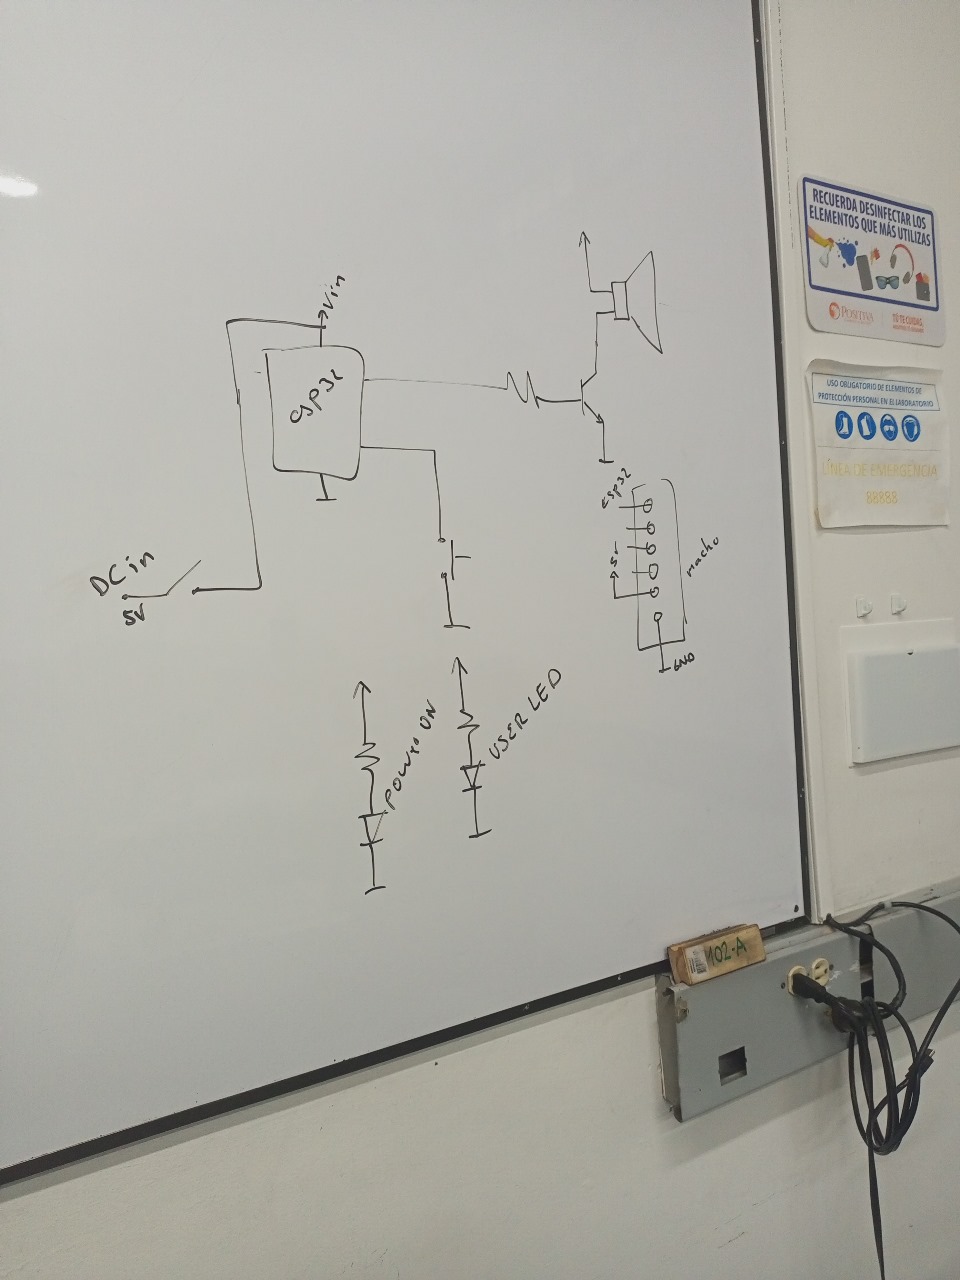 Vin
ESP32
DC in
5V
ESP32
5V
Macho
GND
POWER ON
USER LED
RECUERDA DESINFECTAR LOS
ELEMENTOS QUE MÁS UTILIZAS
POSITIVA
TÚ TE CUIDAS,
USO OBLIGATORIO DE ELEMENTOS DE
PROTECCIÓN PERSONAL EN EL LABORATORIO
LÍNEA DE EMERGENCIA
88888
102-A